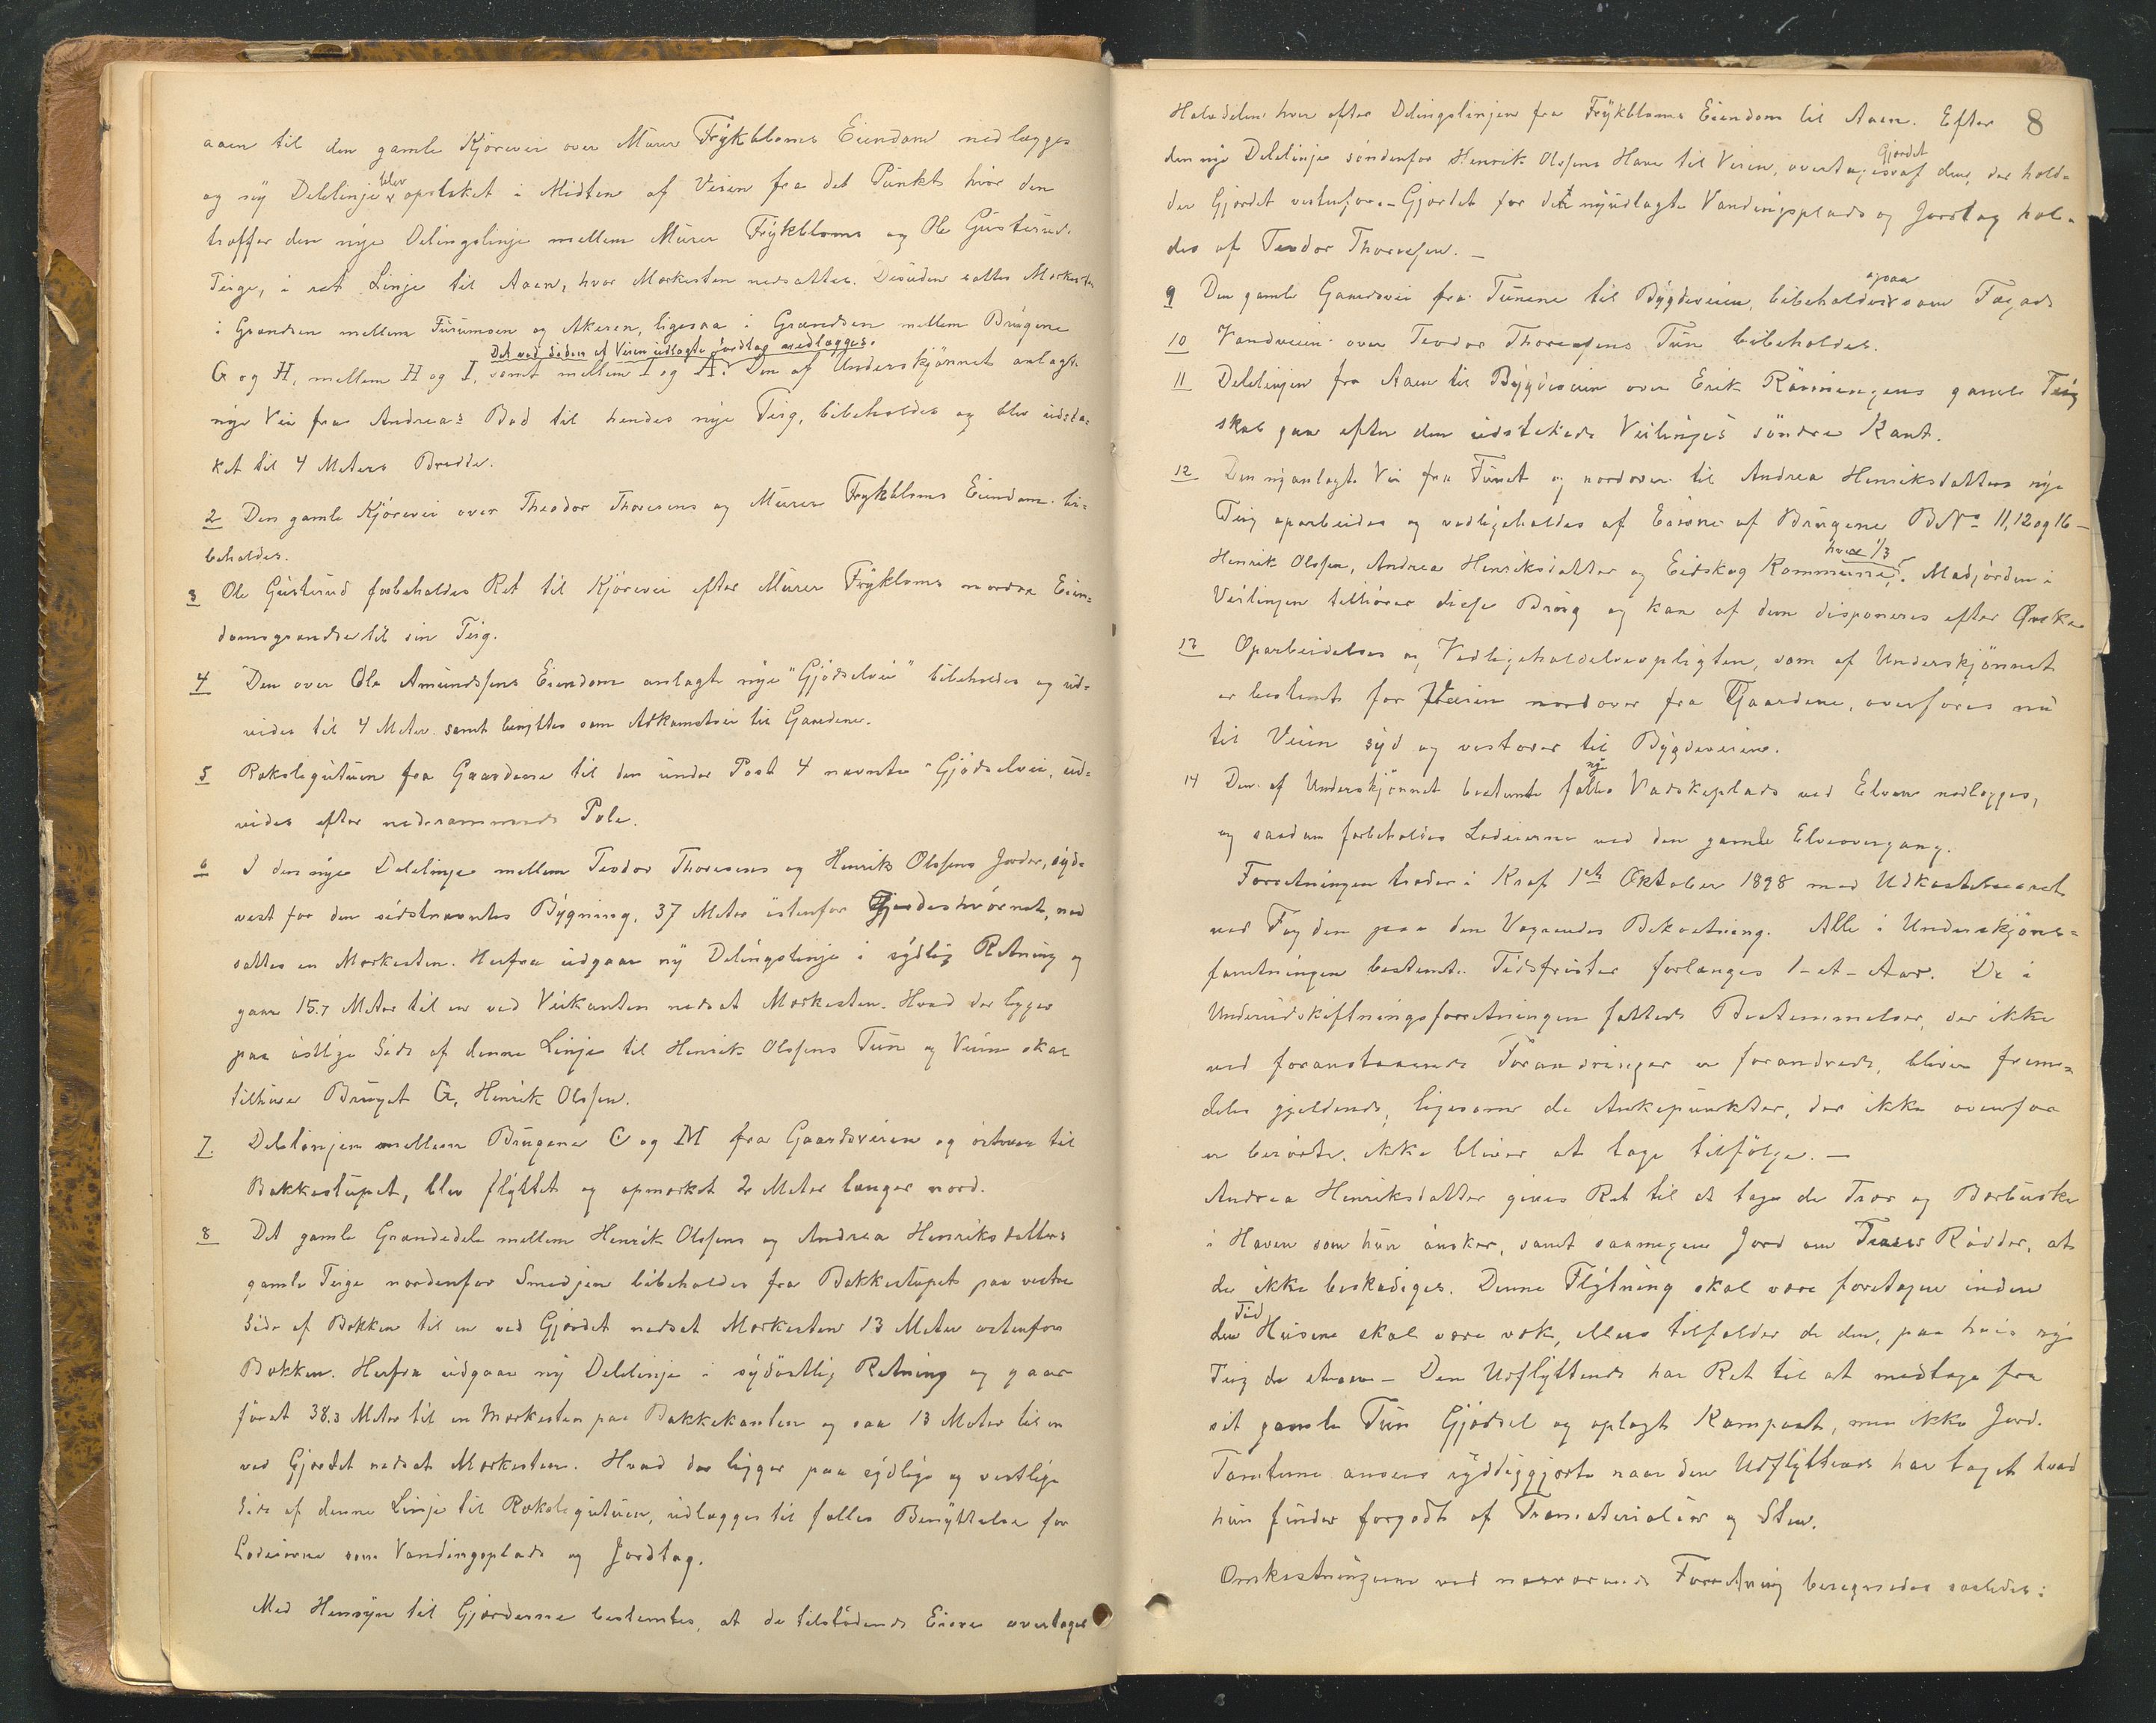 aaen til den gamle Kjörevei over Murer Frykbloms Eiendom nedlægges
og ny Delelinje blev opstukket i Midten af Veien fra det Punkt, hvor den
træffer den nye Delingslinje mellem Murer Frykbloms og Ole Gusterud
Teige, i ret Linje til Aaen, hvor Merkesten nedsattes. Desuden sattes Merkesten
i Grændsen mellem Furumoen og Akeren, ligesaa i Grændsen mellem Brugene
Det ved siden af Veien udlagte Jordtag nedlægges.
G og H, mellem H og I, samt mellem I og A. Den af Underskjönnet anlagte
nye Vei fra Andreas Bad til hendes nye Teig, bibeholdes og blev udsta-
ket til 4 Meters Bredde.
2 Den gamle Kjörevei over Theodor Thoresens og Murer Frykbloms Eiendom bi-
beholdes.
3 Ole Gusterud forbeholdes Ret til Kjörevei efter Murer Frykbloms nordre Eien-
domsgrændse til sin Teig.
4 Den over Ole Amundsens Eiendom anlagte nye "Gjödselvei" bibeholdes og ud-
vides til 4 Meter samt benyttes som Adkomstvei til Gaardene.
5 Rækslegutuen fra Gaardene til den under Post 4 nævnte "Gjödselvei, ud-
vides efter nedrammede Pæle.
6 I den nye Delelinje mellem Teodor Thoresens og Henrik Olsens Jorder, syd-
vest for den sidstnævntes Bygning, 37 Meter östenfor Gjerdeshjörnet, ned
sattes en Merkesten. Herfra udgaar ny Delingslinje i sydlig Retning og
gaar 15.7 Meter til en ved Veikanten nedsat Merkesten. Hvad der ligger
paa östlige Side af denne Linje til Henrik Olsens Tun og Veien skal
tilhöre Bruget G, Henrik Olsen.
7. Delelinjen mellem Brugene C og M fra Gaardsveien og östover til
Bakkestupet, blev flyttet og opmerket 2 Meter længer nord.
8 Det gamle Grændedele mellem Henrik Olsens og Andrea Henriksdatters
gamle Teige nordenfor Smedjen bibeholdes fra Bakkestupet paa vestre
Side af Bekken til en ved Gjerdet nedsat Merkesten 13 Meter östenfor
Bekken. Herfra udgaar ny Delelinje i sydöstlig Retning og gaar
först 38.3 Meter til en Merkesten paa Bakkekanten og saa 13 Meter til en
ved Gjerdet nedsat Merkesten. Hvad der ligger paa sydlige og vestlige
Side af denne Linje til Rækslegutuen, udlægges til fælles Benyttelse for
Lodeierne som Vandingsplads og Jordtag.
Med Hensyn til Gjerderne bestemtes, at de tilstödende Eiere overtager
8
Halvdelen hver efter Delingslinjen fra Frykbloms Eiendom til Aaen. Efter
den nye Delelinje söndenfor Henrik Olsens Have til Veien, overtages Gjerdet af den, der hold-
der Gjerdet vestenfor. - Gjerdet for det nyudlagte Vandingsplads og Jordtag hol-
des af Teodor Thoresen. -
9 Den gamle Gaardsvei fra Tunene til Bygdeveien, bibeholdes ogsaa som Fægade
10 Vandveien over Teodor Thoresens Tun bibeholdes.
11 Delelinjen fra Aaen til Bygdeveien over Erik Rönningens gamle Teig
skal gaa efter den udstukkede Veilinjes söndre Kant.
12 Den nyanlagte Vei fra Tunet og nordover til Andrea Henriksdatters nye
Teig oparbeides og vedligeholdes af Eierne af Brugene BNo 11, 12 og 16 -
Henrik Olsen, Andrea Henriksdatter og Eidskog Kommune, hver 1/3. Madjorden i
Veilinjen tilhörer disse Brug og kan af dem disponeres efter Önske
13 Oparbeidelses og Vedligeholdelsespligten, som af Underskjönnet
er bestemt for Veien nordover fra Gaardene, overföres nu
til Veien syd og vestover til Bygdeveien.
14 Den af Underskjönnet bestemte nye fælles Vadskeplads ved Elven nedlægges,
og saadan forbeholdes Lodeierne ved den gamle Elveovergang.
Forretningen træder i Kraft 1ste Oktober 1898 med Udkastelsesret
ved Fogden paa den Vægrendes Bekostning. Alle i Underskjöns-
forretningen bestemte Tidsfrister forlænges 1 - et - Aar. De i
Underudskiftningsforretningen fattede Bestemmelser, der ikke
ved foranstaaende Forandringer er forandrede, bliver frem-
deles gjeldende, ligesom de Ankepunkter, der ikke ovenfor
er berörte, ikke bliver at tage tilfölge. -
Andrea Henriksdatter gives Ret til at tage de Trær og Bærbuske
i Haven som hun önsker, samt saamegen Jord om Træers Rödder, at
de ikke beskadiges. Denne Flytning skal være foretagen inden
den Tid Husene skal være væk, ellers tilfalder de den, paa hvis nye
Teig de staar. - Den Udflyttende har Ret til at medtage fra
sit gamle Tun Gjödsel og oplagt Kompost, men ikke Jord.
Tomterne ansees ryddiggjorte naar den Udflyttende har taget hvad
hun finder forgodt af Træmaterialier og Sten.
Omkostningerne ved nærværende Forretning beregnedes saaledes: